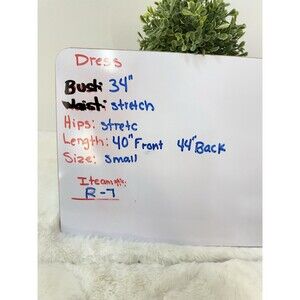 Dress
Bust: 34"
Waist: stretch
Hips: stretc
Length: 40" Front 44" Back
Size: small
R-7